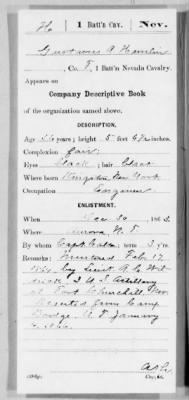 H | 1 Batt'n Cav. | Nev.
Gustavus A. Hamlin
, Co. F, 1 Batt'n Nevada Cavalry.
Appears on
Company Descriptive Book
of the organization named above.
DESCRIPTION.
Age years; height 5 feet inches.
Complexion Fair
Eyes Black; hair
Where born Kingston New York
Occupation Engineer
ENLISTMENT.
When Dec 30, 1863.
Where Aurora N. T.
By whom Capt. ; term 3 y'rs.
Remarks: Mustered Feb. 17
1864 by Lieut. A. E.
3 U S Artillery
at Fort Churchill Nev
Deserted from Camp
N. T. January
Copyist.